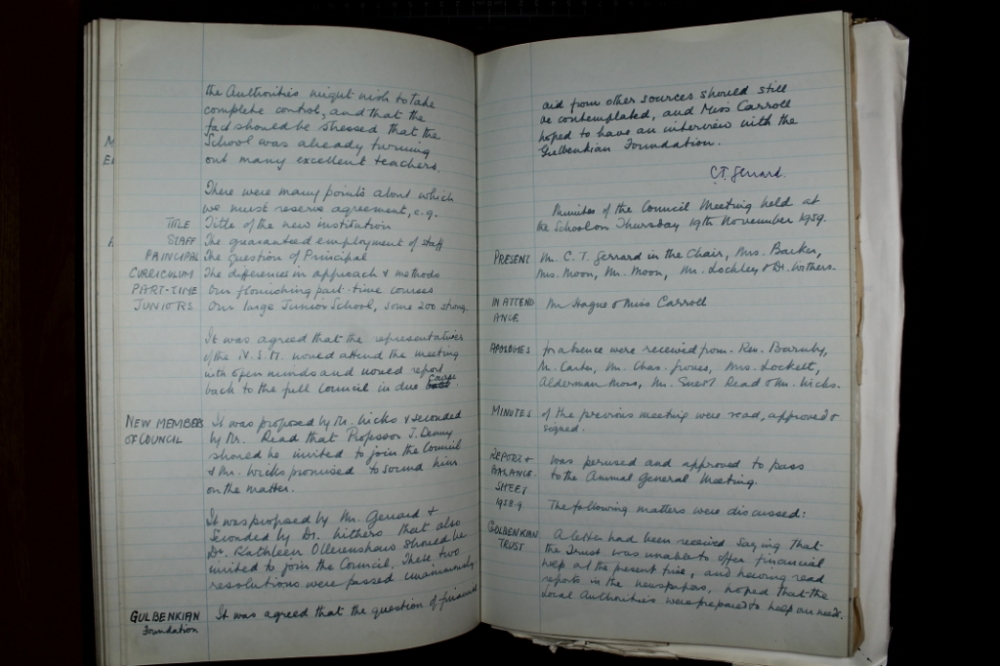 the Authorities might wish to take
complete control, and that the
fact should be stressed that the
School was already turning
out many excellent teachers.
There were many points about which
we must reserve agreement, e.g.
TITLE Title of the new institution
STAFF The guaranteed employment of staff
PRINCIPAL The question of Principal
CURRICULUM The difference in approach & methods
PART-TIME Our flourishing part-time courses
JUNIORS Our large Junior School, some 200 strong.
It was agreed that the representatives
of the N.S.M. would attend the meeting
with open minds and would report
back to the full Council in due course.
NEW MEMBERS It was proposed by Mr. Wicks & seconded
OF COUNCIL by Mr. Read that Professor J. Denny
should be invited to join the Council
& Mr. Wicks promised to sound him
on the matter.
It was proposed by Mr. Gerrard &
seconded by Dr. Withers that also
Dr. Kathleen Ollerenshaw should be
invited to join the Council. These two
resolutions were passed unanimously
GULBENKIAN It was agreed that the question of financial
Foundation
aid from other sources should still
be contemplated, and Miss Carroll
hoped to have an interview with the
Gulbenkian Foundation.
C.T. Gerrard.
Minutes of the Council Meeting held at
the School on Thursday 19th November 1959.
PRESENT Mr. C. T. Gerrard in the Chair, Mrs. Barker,
Mrs. Moon, Mr. Moon, Mr. Lochley & Dr. Withers.
IN ATTEND Mr Hague & Miss Carroll
ANCE
APOLOGIES for absence were received from Rev. Barnby,
Mr. Carter, Mr. Chas. Groves, Mrs. Lockett,
Alderman Moss, Mr. Read & Mr. Wicks.
MINUTES of the previous meeting were read, approved &
signed.
REPORT & was perused and approved to pass
BALANCE to the Annual General Meeting.
SHEET
1958-9 The following matters were discussed:
GULBENKIAN A letter had been received saying that
TRUST the Trust was unable to offer financial
help at the present time, and having read
reports in the newspapers, hoped that the
Local Authorities were prepared to help our needs.